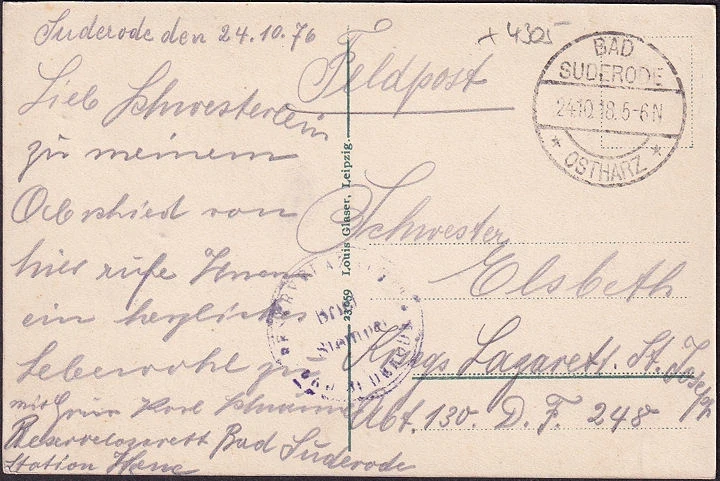 Suderode den 24.10.76
Lieb Schwesterlein
zu meinem
Abschied von
hier rufe Ihnen
ein herzliches
Lebewohl zu
mit Gruss Karl
Reservelazarett Bad Suderode
Station
+ 4305
Feldpost
BAD
SUDERODE
24.10.18.5-6N
* OSTHARZ *
23959 Louis Glaser, Leipzig.
Schwester
Elsbeth
Kriegs Lazarett. St. Joseph
Abt. 130. D. F. 248
Brief
Stempel